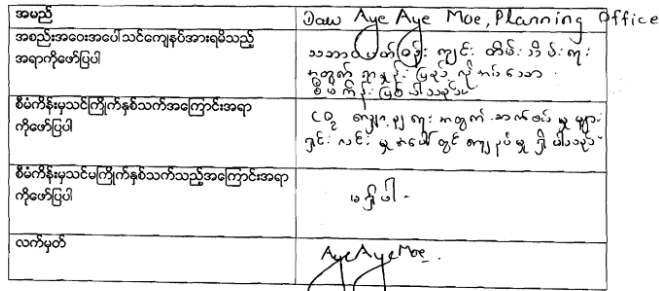 အမည်
Daw Aye Aye Moe, Planning Office
အစည်းအဝေးအပေါ်သင်ကျေနပ်အားရမိသည့်
အရာကိုဖော်ပြပါ
သဘာဝပတ်ဝန်းကျင်ထိမ်းသိမ်းရေး
အတွက်
စီမံကိန်းဖြစ်ပါသည်။
စီမံကိန်းမှသင်ကြိုက်နှစ်သက်အကြောင်းအရာ
ကိုဖော်ပြပါ
CO2 လျှော့ချရေးအတွက် ဆက်စပ်မှုများ
ရှင်းလင်းမှုအပေါ်တွင် ကျေနပ်မှုရှိပါသည်။
စီမံကိန်းမှသင်မကြိုက်နှစ်သက်သည့်အကြောင်းအရာ
ကိုဖော်ပြပါ
မရှိပါ -
လက်မှတ်
Aye Aye Moe.